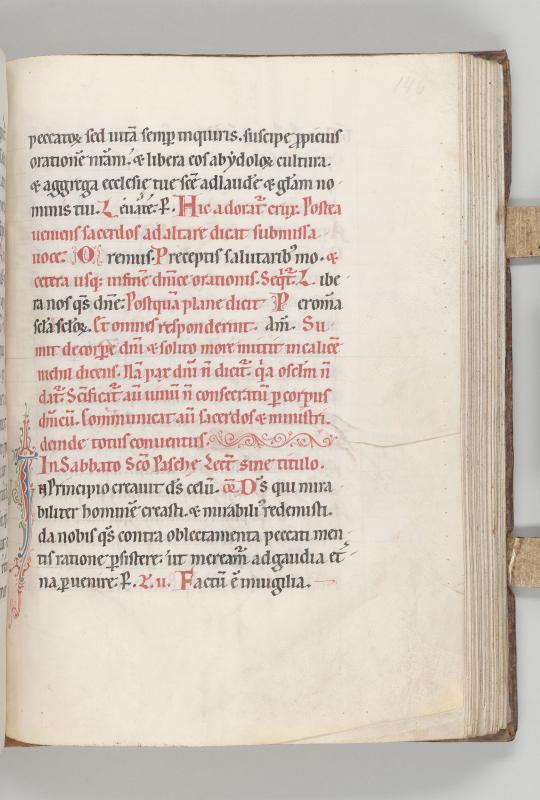 146
peccatoꝝ sed uitā semꝑ inquiris. suscipe ꝓpicius
orationē nr̄am. & libera eos ab ydoloꝝ cultura.
& aggrega ecclesię tuę scē ad laudē & gl̄am no
minis tui. Leuate. P. Hic adorat᷑ crux. Postea
ueniens sacerdos ad altare dicat submissa
uoce. Oremus. Preceptis salutaribꝰ mo. &
cetera usq; in finē dn̄ice orationis. Seqt᷑. Libe
ra nos qs̄ dn̄e. Postquā plane dicit Per om̄a
scl̄a scl̄oꝝ. Et omnes responderint. Am̄. Su
mit de corꝑe dn̄i & solito more mittit in calicē
nichil dicens. Nā pax dn̄i n̄ dicit᷑. qͥa osclm̄ n̄
dat᷑. Scīficat᷑ aū uinū n̄ consecratū ꝑ corpus
dn̄icū. Communicat aū sacerdos & ministri.
deinde totus conuentus.
In Sabbato Scō Pasche Lect̄ sine titulo.
IN Principio creauit ds̄ celū. Ds̄ qui mira
biliter hominē creasti. & mirabiliꝰ redemisti.
da nobis qs̄ contra oblectamenta peccati men
tis ratione ꝑsistere. ut meream̄ ad gaudia et
na ꝑuenire. P. L. ii. Factū ē in uigilia.